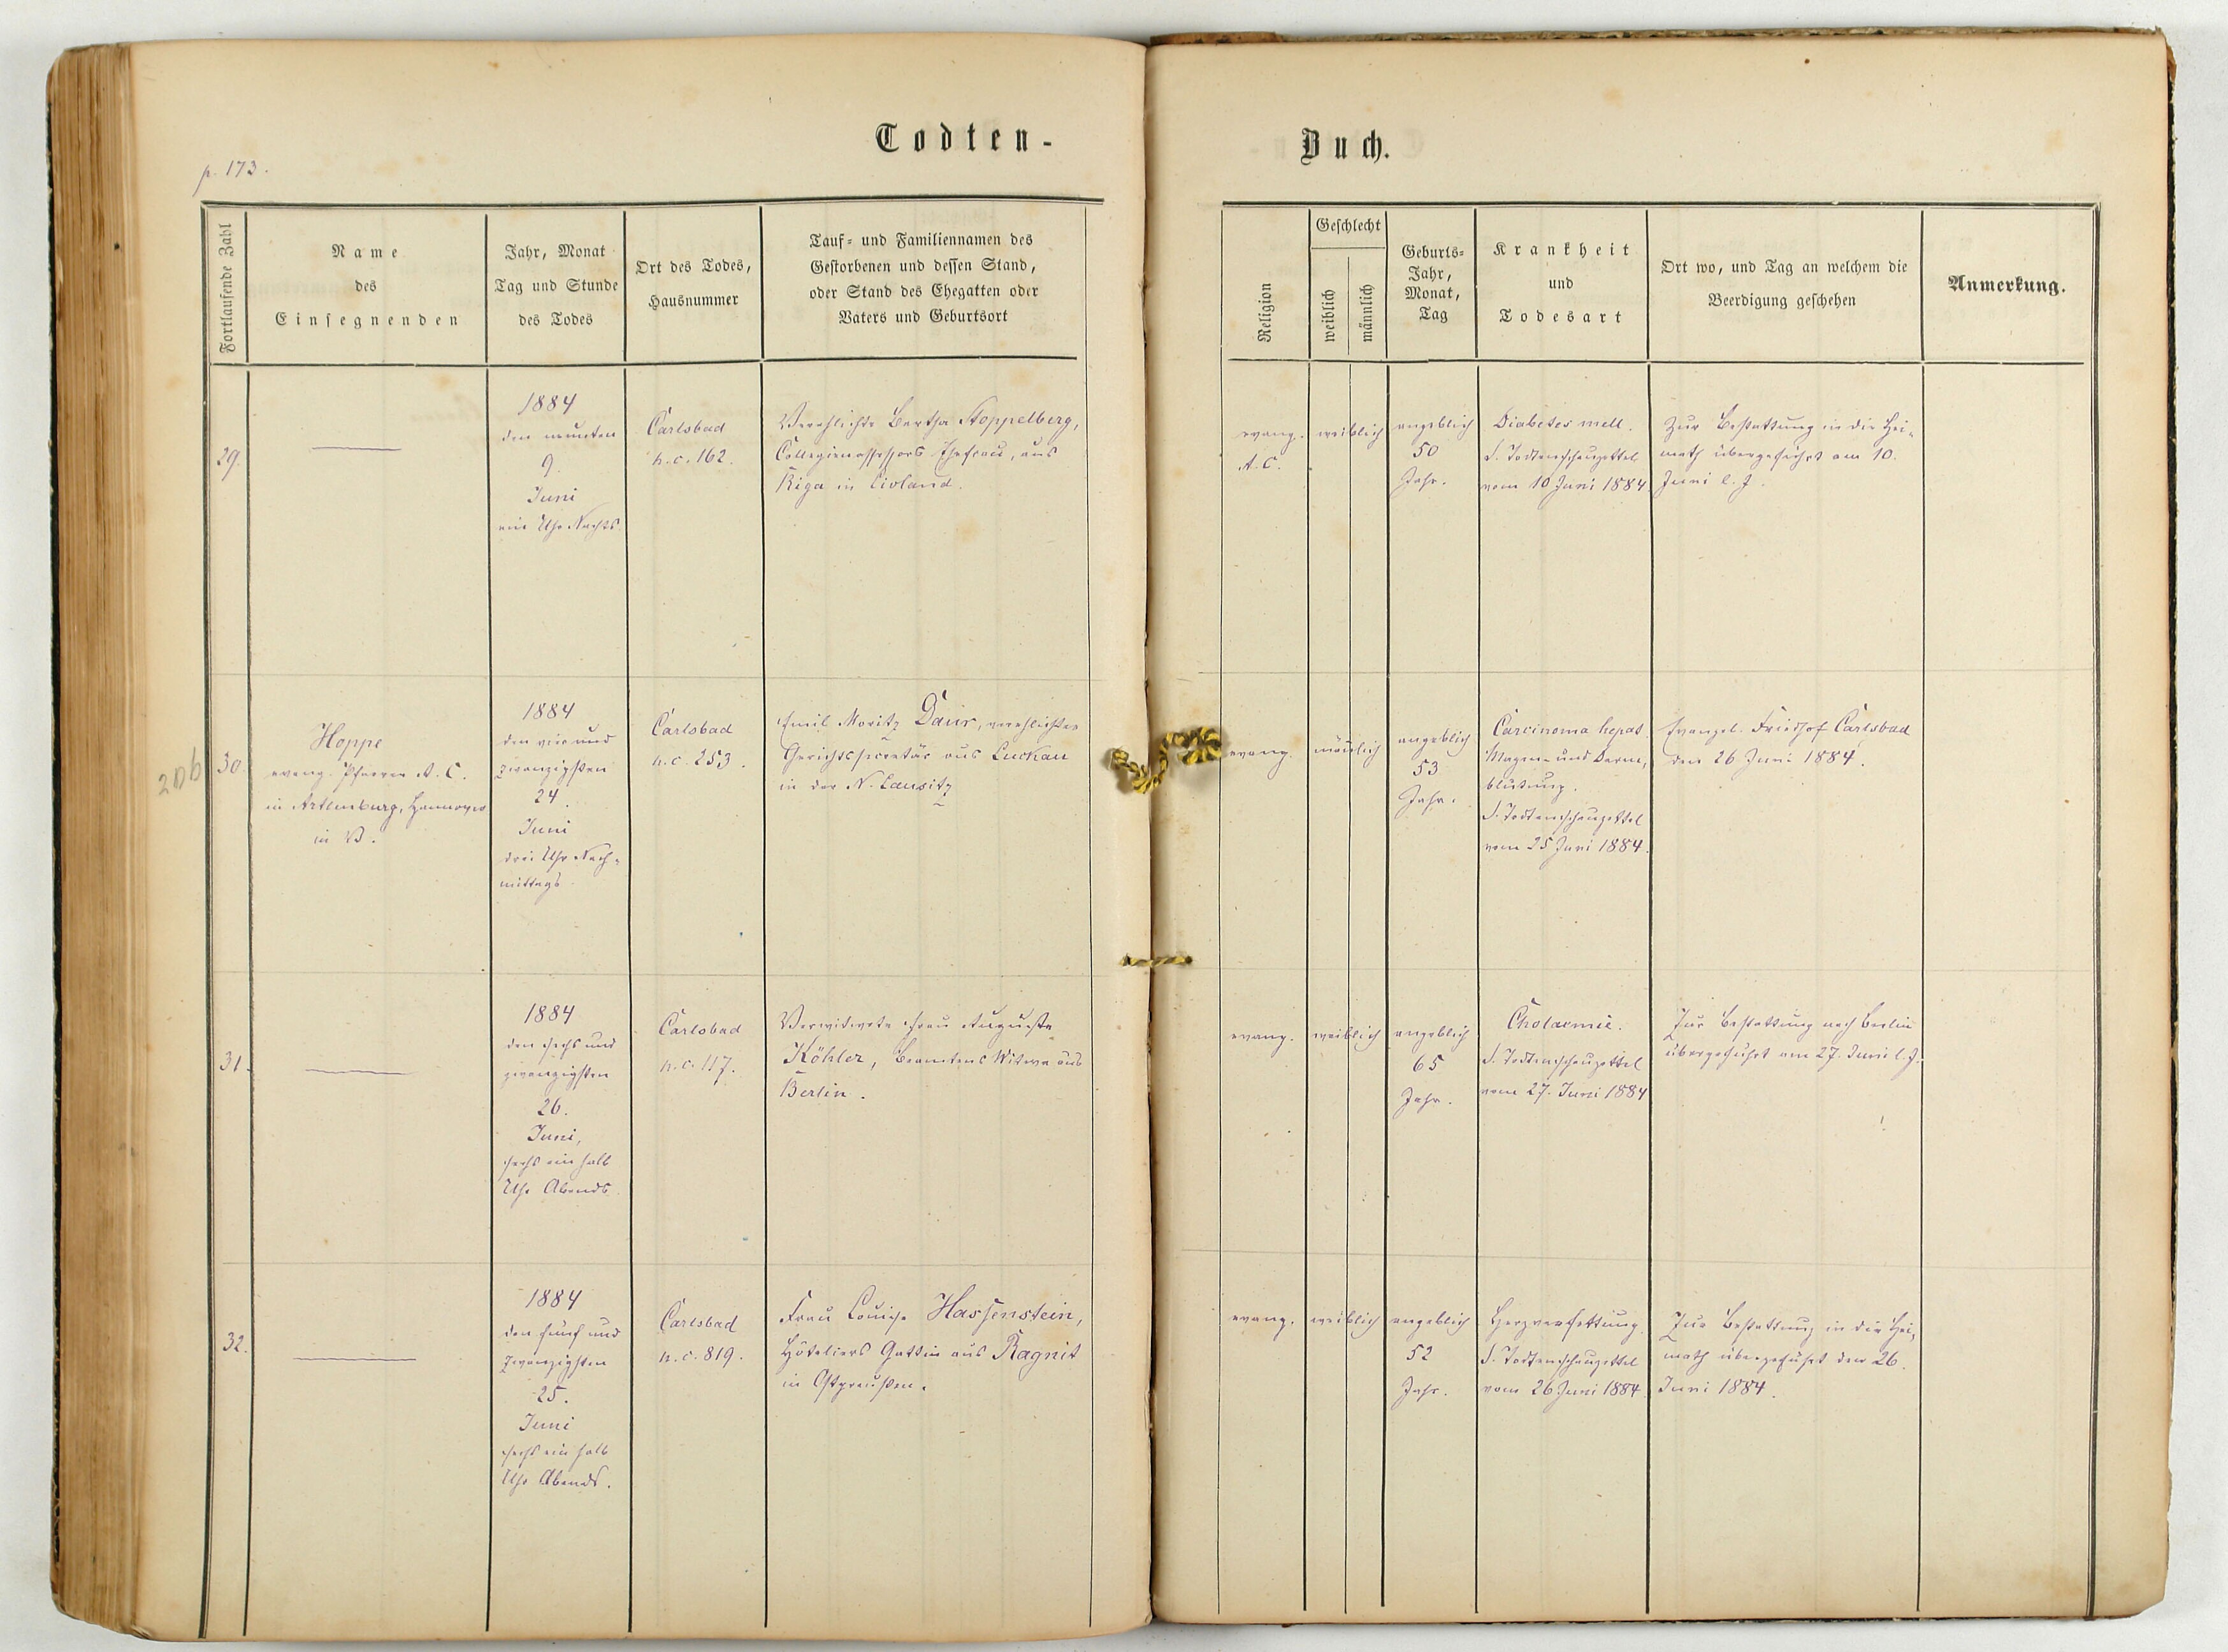 p. 173.
Todten-
Buch.
Fortlaufende Zahl
Name
des
Einsegnenden
Jahr, Monat
Tag und Stunde
des Todes
Ort des Todes,
Hausnummer
Tauf- und Familiennamen des
Gestorbenen und dessen Stand,
oder Stand des Ehegatten oder
Vaters und Geburtsort
Religion
Geschlecht
weiblich
männlich
Geburts-
Jahr,
Monat,
Tag
Krankheit
und
Todesart
Ort wo, und Tag an welchem die
Beerdigung geschehen
Anmerkung.
29.
1884
den neunten
9.
Juni
ein Uhr Nachts.
Carlsbad
n.c. 162.
Verehlichte Bertha Stoppelberg,
Collegienassessors Ehefrau, aus
Riga in Livland.
evang.
A. C.
weiblich
angeblich
50
Jahr.
Diabetes mell.
S. Todtenschauzettel
vom 10 Juni 1884.
Zur Bestattung in die Hei-
math übergeführt am 10.
Juni l. J.
30.
Hoppe
evang. Pfarrer A. C.
in Artlenburg, Hannover
in V.
1884
den vier und
zwanzigsten
24.
Juni
drei Uhr Nach-
mittags
Carlsbad
n.c. 253.
Emil Moritz Daur, verehlichter
Gerichtssecretär aus Luckau
in der N. Lausitz
evang.
männlich
angeblich
53
Jahr.
Carcinoma hepat.
Magen- und Darm-
blutung.
S. Todtenschauzettel
vom 25 Juni 1884.
Evangel. Friedhof Carlsbad
den 26 Juni 1884.
31.
1884
den sechs und
zwanzigsten
26.
Juni,
sechs ein halb
Uhr Abends.
Carlsbad
n.c. 117.
Verwitwete Frau Auguste
Köhler, Beamtens Witwe aus
Berlin.
evang.
weiblich
angeblich
65
Jahr.
Cholaemie.
S. Todtenschauzettel
vom 27. Juni 1884
Zur Bestattung nach Berlin
übergeführt am 27. Juni l. J.
32.
1884
den fünf und
zwanzigsten
25.
Juni
sechs ein halb
Uhr Abends.
Carlsbad
n.c. 819.
Frau Louise Hassenstein,
Hôteliers Gattin aus Ragnit
in Ostpreußen.
evang.
weiblich
angeblich
52
Jahr.
Herzverfettung.
S. Todtenschauzettel
vom 26 Juni 1884.
Zur Bestattung in die Hei-
math übergeführt den 26.
Juni 1884.